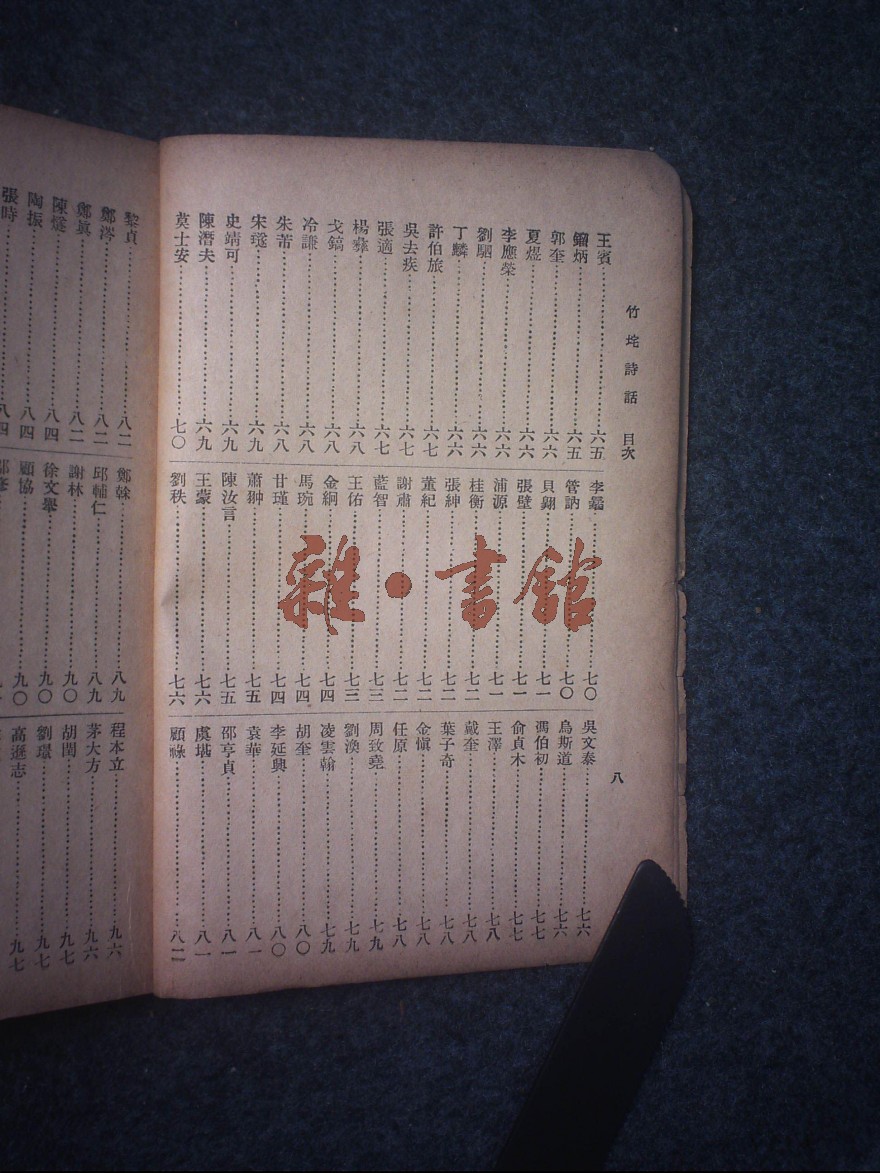 竹垞詩話 目次
八
王賓……六五
鎦炳……六五
郭奎……六六
夏煜……六六
李應榮……六六
劉駰……六六
丁麟……六六
許伯旅……六七
吳去疾……六七
張適……六七
楊彝……六八
戈鎬……六八
冷謙……六八
朱芾……六八
宋璲……六九
史靖可……六九
陳潛夫……六九
莫士安……七〇
李鐺……七〇
管訥……七〇
貝翺……七一
張壁……七一
浦源……七一
桂衡……七二
張紳……七二
董紀……七二
謝肅……七二
藍智……七三
王佑……七三
金絅……七四
馬琬……七四
甘瑾……七四
蕭翀……七五
陳汝言……七五
王蒙……七六
劉秩……七六
吳文泰……七六
烏斯道……七六
馮伯初……七七
俞貞木……七七
王澤……七八
戴奎……七八
葉子奇……七八
金愼……七八
任原……七八
周致堯……七九
劉渙……七九
凌雲翰……七九
胡奎……八〇
李延興……八〇
袁華……八一
邵亨貞……八一
虞堪……八一
顧祿……八二
黎貞……八二
鄭涔……八二
鄭眞……八二
陳燧……八四
陶振……八四
張時……八四
鄭榦……八九
邱輔仁……八九
謝林……九〇
徐文舉……九〇
顧協……九〇
程本立……九六
茅大方……九六
胡閏……九七
劉璟……九七
高遜志……九七
雜·書館